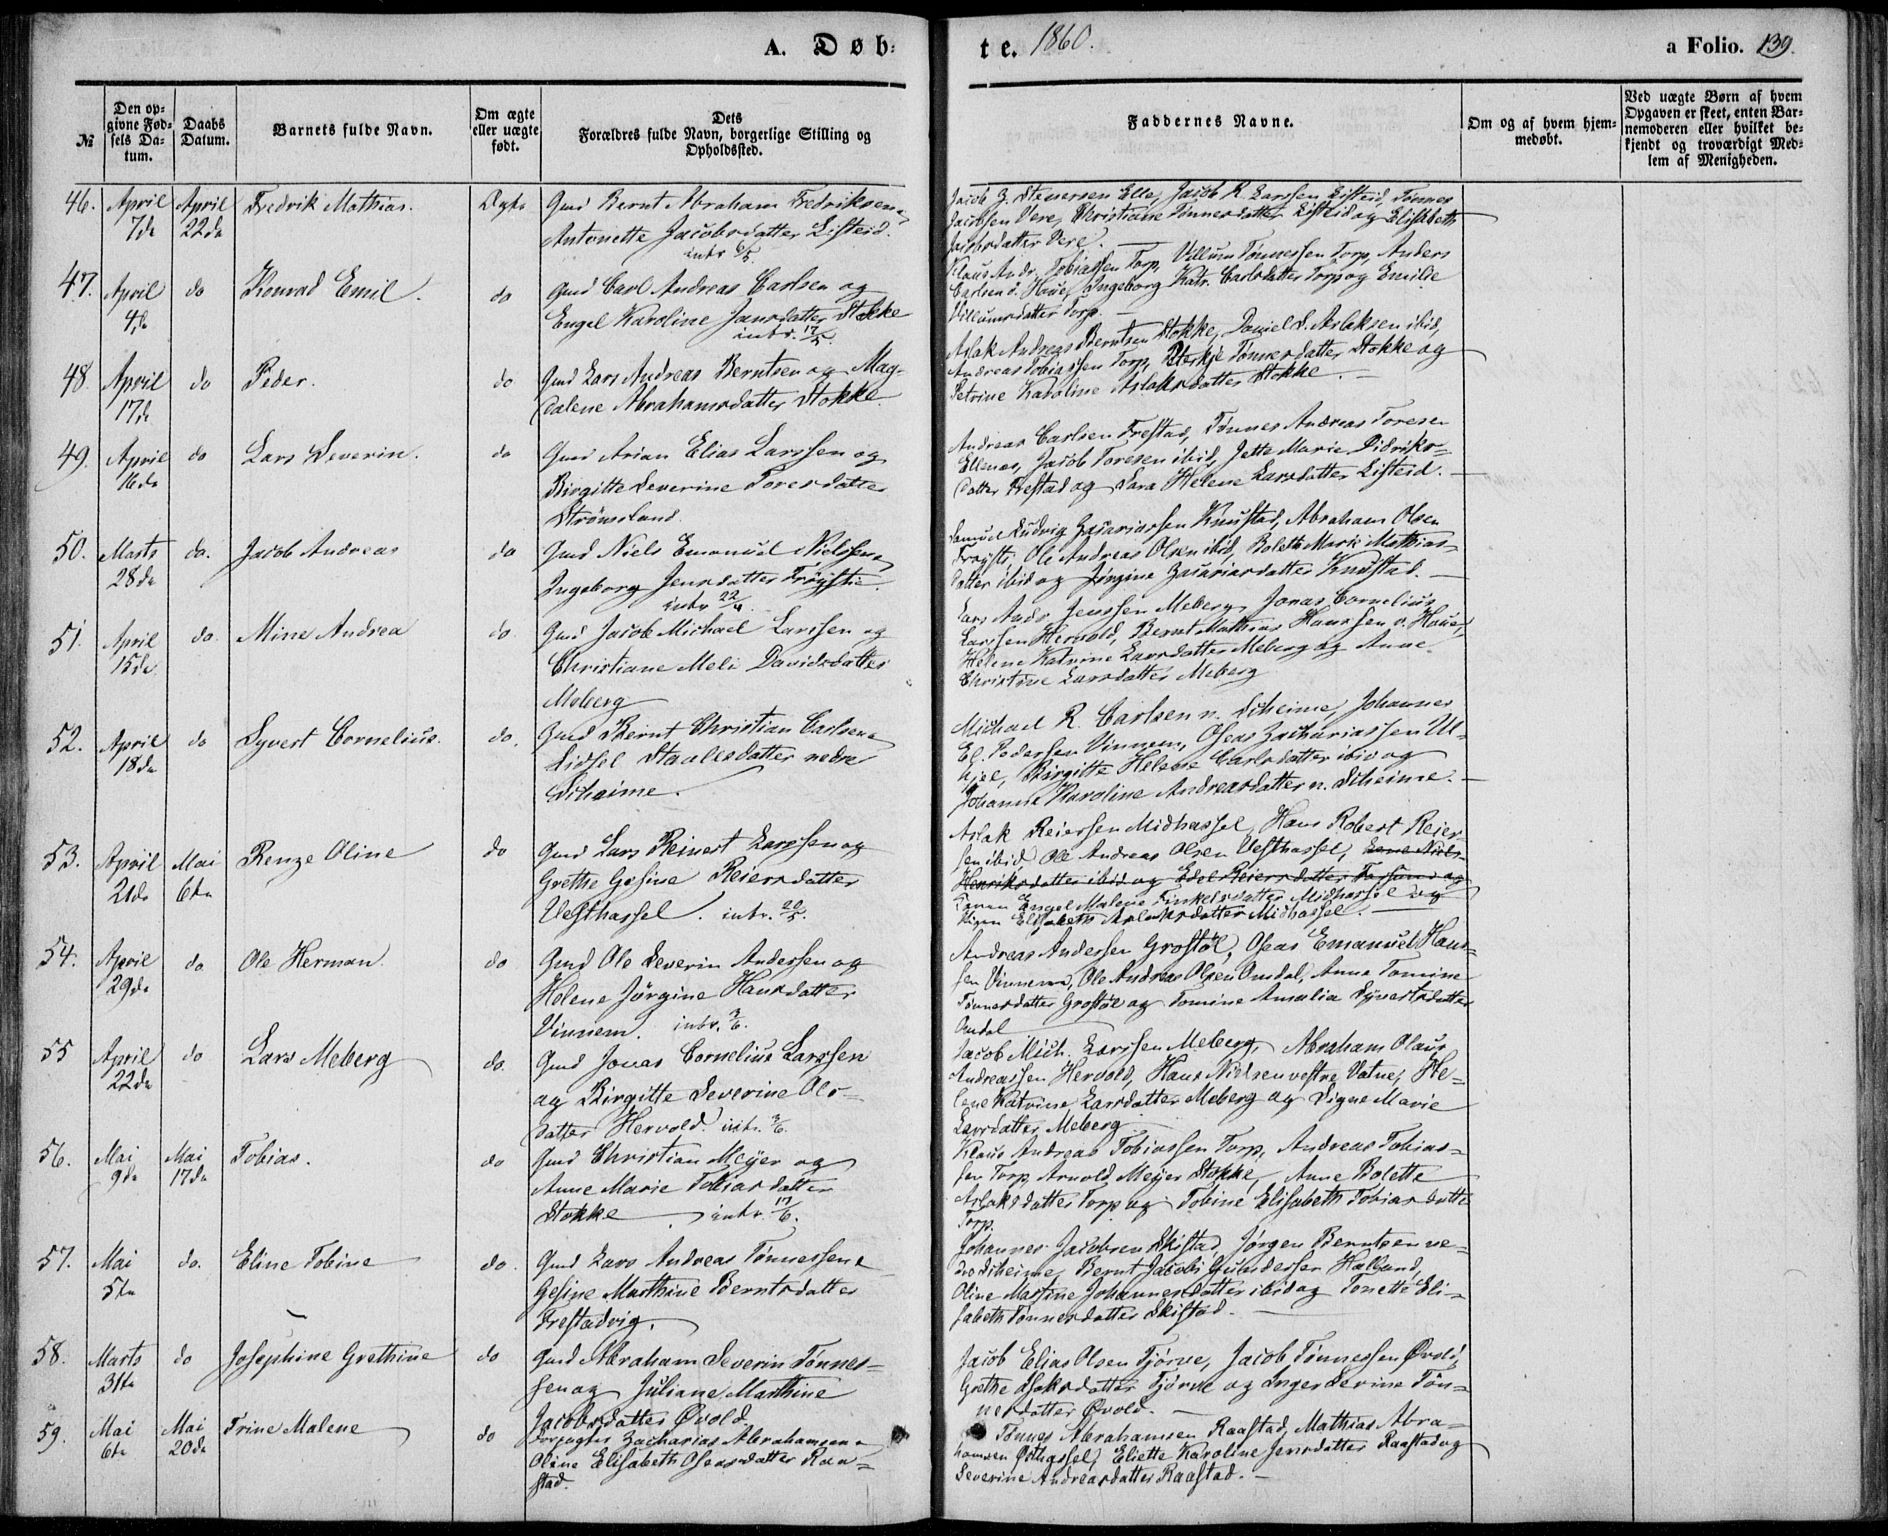 A. Døb=
te. 1860.
a Folio. 139.
№
Den op=
givne Fød=
sels Da=
tum.
Daabs
Datum.
Barnets fulde Navn.
Om ægte
eller uægte
født.
Dets
Forældres fulde Navn, borgerlige Stilling og
Opholdssted.
Faddernes Navne.
Om og af hvem hjem-
medøbt.
Ved uægte Børn af hvem
Opgaven er skeet, enten Bar-
nemoderen eller hvilket be-
kjendt og troværdigt Med-
lem af Menigheden.
46. April 7de April 22de Fredrik Mathias. Ægte
Gmd Bernt Abraham Fredriksen
Antonette Jacobsdatter Listeid.
intr 6/5.
Jacob Z. Stenersen Elle, Jacob R. Larssen Listeid, Tønnes
Jacobsen Vere, Christiane Tønnesdatter Listeid og Elisabeth
Jacobsdatter Vere.
47. April 4de do Konrad Emil. do
Gmd Carl Andreas Carlsen og
Engel Karoline Jansdatter Stokke
intr. 17/5.
Klaus Andr. Tobiassen Torp, Villum Tønnessen Torp, Anders
Carlsen ø. Haue, Ingeborg Katr. Carlsdatter Torp og Emilie
Villumsdatter Torp.
48. April 17de do Peder. do
Gmd Lars Andreas Berntsen og Mag-
dalene Abrahamsdatter Stokke
Aslak Andreas Berntsen Stokke, Daniel S. Aslaksen ibid,
Andreas Tobiassen Torp, Terkje Tønnesdatter Stokke og
Petrine Karoline Aslaksdatter Stokke.
49. April 16de do Lars Severin. do
Gmd Arian Elias Larssen og
Birgitte Severine Toresdatter
Strømsland.
Andreas Carlsen Frestad, Tønnes Andreas Toresen
Ellenes, Jacob Toresen ibid, Jette Marie Didriks-
datter Frestad og Sara Helene Larsdatter Listeid.
50. Marts 28de do. Jacob Andreas do
Gmd Niels Emanuel Nielssen
Ingeborg Jensdatter Frøystie.
intr 22/4.
Samuel Ludvig Zacariassen Knustad, Abraham Olsen
Frøysti, Ole Andreas Olsen ibid, Bolette Marie Mathias-
datter ibid og Jørgine Zacariasdatter Knustad.
51. April 15de do. Mine Andrea do.
Gmd Jacob Michael Larssen og
Christiane Meli Davidsdatter
Meberg
Lars Andr. Jenssen Meberg, Jonas Cornelius
Larssen Hervold, Bernt Mathias Hanssen v. Haue,
Helene Katrine Larsdatter Meberg og Anne
Christine Larsdatter Meberg
52. April 18de do Syvert Cornelius. do.
Gmd Bernt Christian Carlsen
Sidsel Staalesdatter nedre
Skeime.
Michael R. Carlsen n. Skeime, Johannes
El. Pedersen Vinnem, Oseas Zachariassen
Birgitte Helene Carlsdatter ibid og
Johanne Karoline Andreasdatter n. Skeime.
53. April 21de Mai 6te Renze Oline do
Gmd Lars Reinert Larssen og
Grethe Gesine Reiersdatter
Vesthassel. intr. 20/5.
Aslak Reiersen Midhassel, Hans Robert Reier-
sen ibid Ole Andreas Olsen Vesthassel,
Henriksdatter ibid og Edel Reiersdatter Farsund og
Engel Malene Tinkelsdatter Midhassel og
Elisabeth Aslaksdatter Midhassel.
54. April 29de do Ole Herman. do
Gmd Ole Severin Andersen og
Helene Jørgine Hansdatter
Vinnem. intr. 3/6.
Andreas Andersen Grostøl, Oseas Emanuel Hans-
sen Vinnem, Ole Andreas Olsen Omdal, Anne Tomine
Tønnesdatter Grostøl og Tomine Amalia Syvertsdatter
Omdal
55 April 22de do Lars Meberg do.
Gmd Jonas Cornelius Larssen
og Birgitte Severine Ols-
datter Hervold. intr. 3/6.
Jacob Mich. Larssen Meberg, Abraham Olaus
Andreassen Hervold, Hans Nielsen vestre Vatne, He-
lene Katrine Larsdatter Meberg og Signe Marie
Larsdatter Meberg
56. Mai 9de Mai 17de Tobias. do
Gmd Christian Meyer og
Anne Marie Tobiasdatter
Stokke intr. 17/6.
Klaus Andreas Tobiassen Torp, Andreas Tobias-
sen Torp, Arnold Meyer Stokke, Anne Bolette
Aslaksdatter Torp og Tobine Elisabeth Tobiasdatter
Torp.
57. Mai 5te do. Eline Tobine do.
Gmd Lars Andreas Tønnessen
Gesine Marthine Berntsdatter
Frestadvig.
Johannes Jacobsen Skistad, Jørgen Berntsen ne-
dre Skeime, Bernt Jacob Gundersen Halland,
Oline Martine Johannesdatter ibid og Tonette Eli-
sabeth Tønnesdatter Skistad.
58. Marts 31te do Josephine Grethine do
Gmd Abraham Severin Tønnes-
sen og Juliane Marthine
Jacobsdatter Øvold
Jacob Elias Olsen Tjørve, Jacob Tønnessen Øvold,
Grethe Isaksdatter Tjørve og Inger Serine Tøn-
nesdatter Øvold.
59. Mai 6te Mai 20de Trine Malene do
Forpagter Zacharias Abrahamsen
Oline Elisabeth Oseasdatter Raa-
stad.
Tønnes Abrahamsen Raastad, Mathias Abra-
hamsen Østhassel, Eliette Karoline Jensdatter Raastad og
Severine Andreasdatter Raastad.